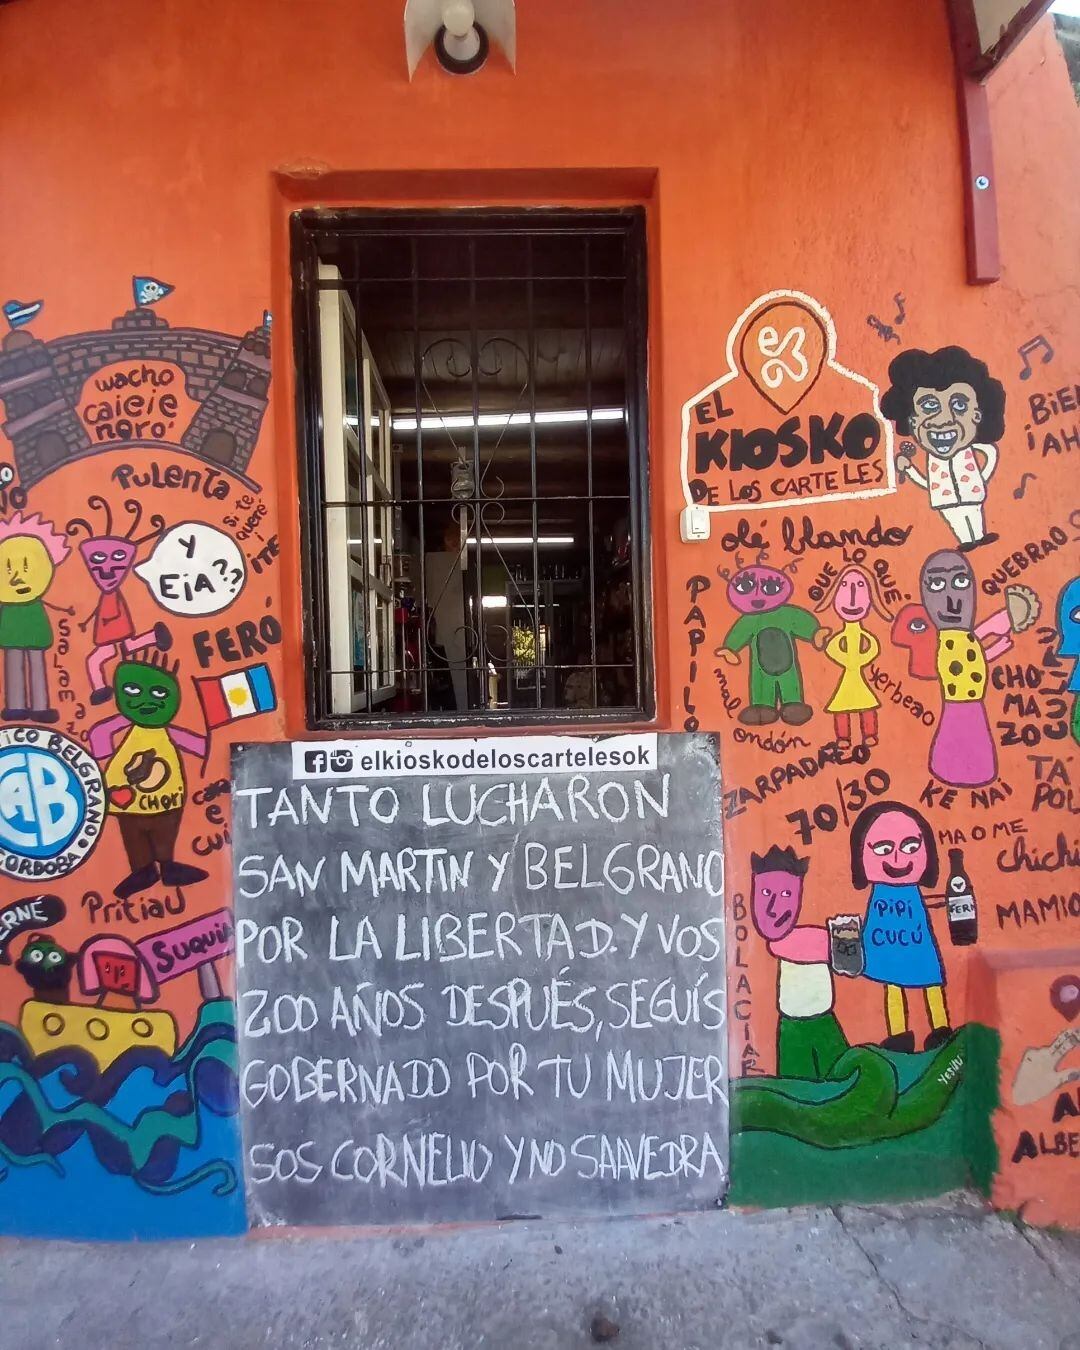 wacho
caieie
noró
Pulenta
si te
queró
iTE
Y
EiA??
Salamazo
FERÓ
CAB
BELGRANO
CORDOBA
CHORi
Pritiau
SUQUIA
EL
KIOSKO
DE LOS CARTELES
BiE
¡AH
olé blando
QUE LO QUE.
QUEBRAO
PAPILO
mal
ondón
yerbeao
CHO
MA
ZO
ZARPADAZO
70/30
KE NAi
TA
POL
MAOME
chichi
MAMiO
FERN
PiPi
CUCÚ
BOLACiAR
YESHU
ALBE
elkioskodeloscartelesok
TANTO LUCHARON
SAN MARTIN Y BELGRANO
POR LA LIBERTAD. Y VOS
200 AÑOS DESPUÉS, SEGUÍS
GOBERNADO POR TU MUJER
SOS CORNELIO Y NO SAAVEDRA